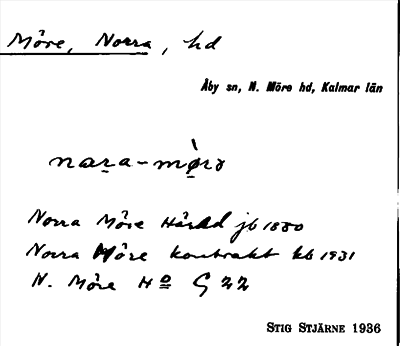 Möre, Norra, hd
Åby sn, N. Möre hd, Kalmar län
nara-mòrə
Norra Möre Härad jb 1880
Norra Möre kontrakt kb 1931
N. Möre Hº G 22
STIG STJÄRNE 1936